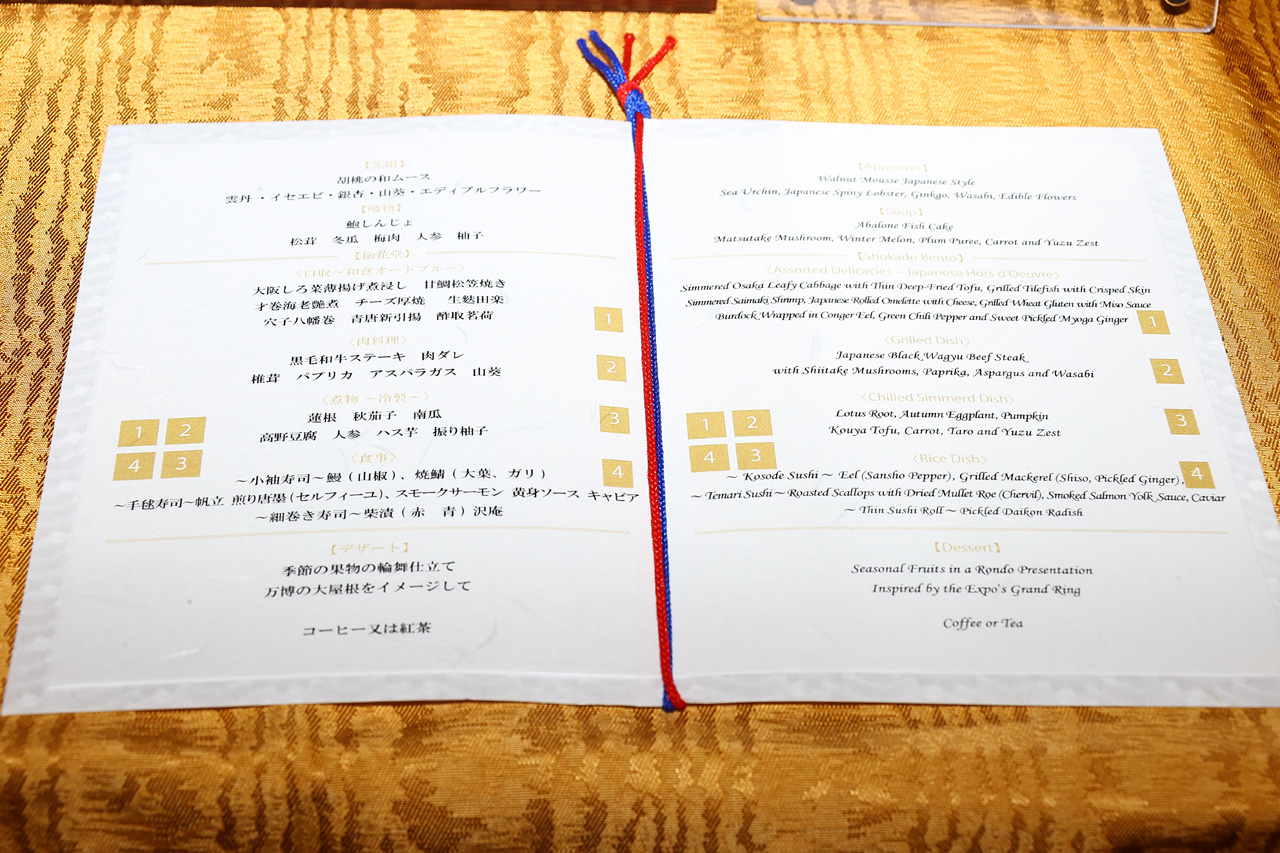 【先附】
胡桃の和ムース
雲丹・イセエビ・銀杏・山葵・エディブルフラワー
【吸物】
鮑しんじょ
松茸 冬瓜 梅肉 人参 柚子
【松花堂】
〈口取～和食オードブル～〉
大阪しろ菜薄揚げ煮浸し 甘鯛松笠焼き
才巻海老艶煮 チーズ厚焼 生麩田楽
穴子八幡巻 青唐新引揚 酢取茗荷
1
〈肉料理〉
黒毛和牛ステーキ 肉ダレ
椎茸 パプリカ アスパラガス 山葵
2
〈煮物～冷製～〉
蓮根 秋茄子 南瓜
高野豆腐 人参 ハス芋 振り柚子
3
1 2
4 3
〈食事〉
～小袖寿司～鰻（山椒）、焼鯖（大葉、ガリ）
4
～手毬寿司～帆立 煎り唐墨（セルフィーユ）、スモークサーモン 黄身ソース キャビア
～細巻き寿司～柴漬（赤 青）沢庵
【デザート】
季節の果物の輪舞仕立て
万博の大屋根をイメージして
コーヒー又は紅茶
【Appetizer】
Walnut Mousse Japanese Style
Sea Urchin, Japanese Spiny Lobster, Ginkgo, Wasabi, Edible Flowers
【Soup】
Abalone Fish Cake
Matsutake Mushroom, Winter Melon, Plum Puree, Carrot and Yuzu Zest
【Shokado Bento】
〈Assorted Delicacies ~ Japanese Hors d'Oeuvre〉
Simmered Osaka Leafy Cabbage with Thin Deep-Fried Tofu, Grilled Tilefish with Crisped Skin
Simmered Saimaki Shrimp, Japanese Rolled Omelette with Cheese, Grilled Wheat Gluten with Miso Sauce
Burdock Wrapped in Conger Eel, Green Chili Pepper and Sweet Pickled Myoga Ginger
1
〈Grilled Dish〉
Japanese Black Wagyu Beef Steak
with Shiitake Mushrooms, Paprika, Aspargus and Wasabi
2
〈Chilled Simmerd Dish〉
Lotus Root, Autumn Eggplant, Pumpkin
Kouya Tofu, Carrot, Taro and Yuzu Zest
3
1 2
4 3
〈Rice Dish〉
~ Kosode Sushi ~ Eel (Sansho Pepper), Grilled Mackerel (Shiso, Pickled Ginger),
4
~ Temari Sushi ~ Roasted Scallops with Dried Mullet Roe (Chervil), Smoked Salmon Yolk Sauce, Caviar
~ Thin Sushi Roll ~ Pickled Daikon Radish
【Dessert】
Seasonal Fruits in a Rondo Presentation
Inspired by the Expo's Grand Ring
Coffee or Tea